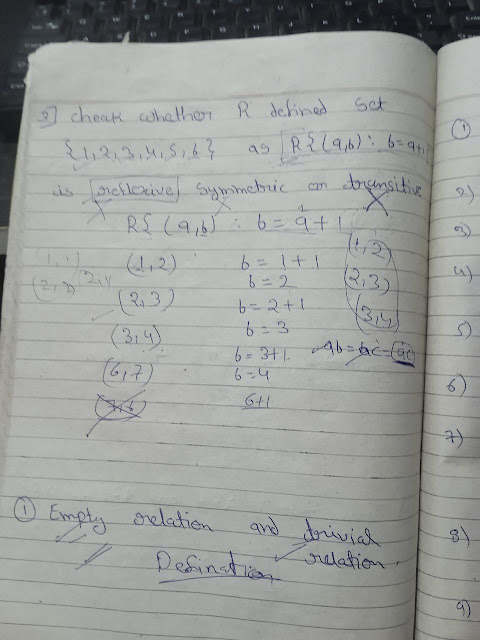 2] cheak whether R defined Set
{1,2,3,4,5,6} as R{(a,b): b=a+1}
is reflexive symmetric or transitive
R{(a,b) : b = a+1
(1,2) b = 1+1 (1,2)
b = 2
(2,3) b = 2+1 (2,3)
b = 3
(3,4) b = 3+1 (3,4)
(6,7) b = 4
6+1
① Empty relation and trivial
relation.
Defination
①
2)
3)
4)
5)
6)
7)
8)
9)